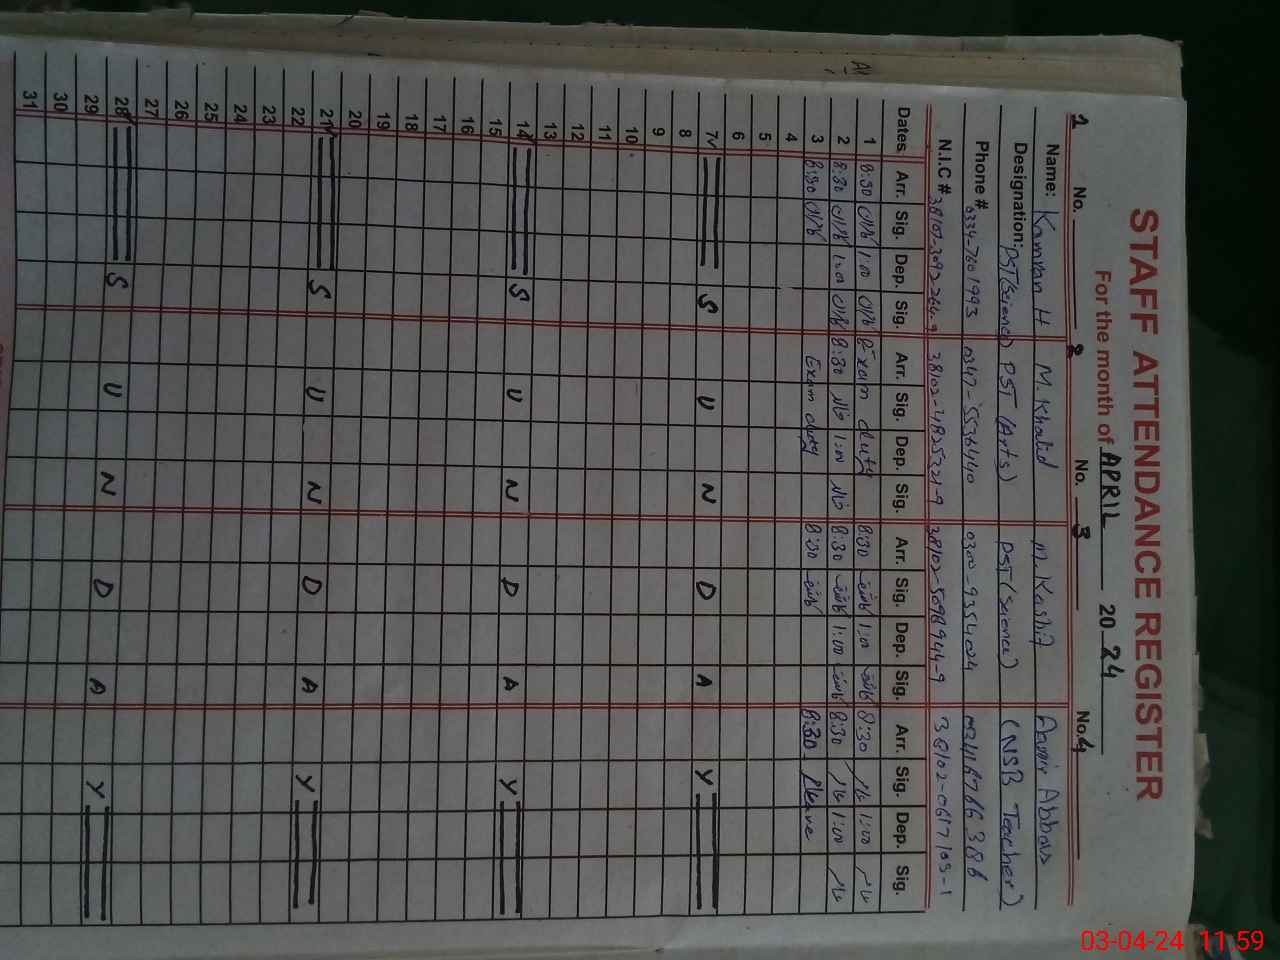 STAFF ATTENDANCE REGISTER
For the month of APRIL 20 24
1 No. 2 No. 3 No. 4
Name: Kamran H M. Khalid M. Kashif Aamir Abbas
Designation: PST (Science) PST (Arts) PST (Science) (NSB Teacher)
Phone # 0334-7601993 0347-5536440 0300-9354024
N.I.C # 38102-5098944-9 38102-0617103-1
Dates Arr. Sig. Dep. Sig. Arr. Sig. Dep. Sig. Arr. Sig. Dep. Sig. Arr. Sig. Dep. Sig.
1 8:30 1:00 Exam duty 8:30 1:00 8:30 1:00
2 8:30 1:00 8:30 1:00 8:30 1:00 8:30 1:00
3 8:30 Exam duty 8:30 8:30 Pleave
4
5
6
7 S U N D A Y
8
9
10
11
12
13
14 S U N D A Y
15
16
17
18
19
20
21 S U N D A Y
22
23
24
25
26
27
28 S U N D A Y
29
30
31
03-04-24 11:59